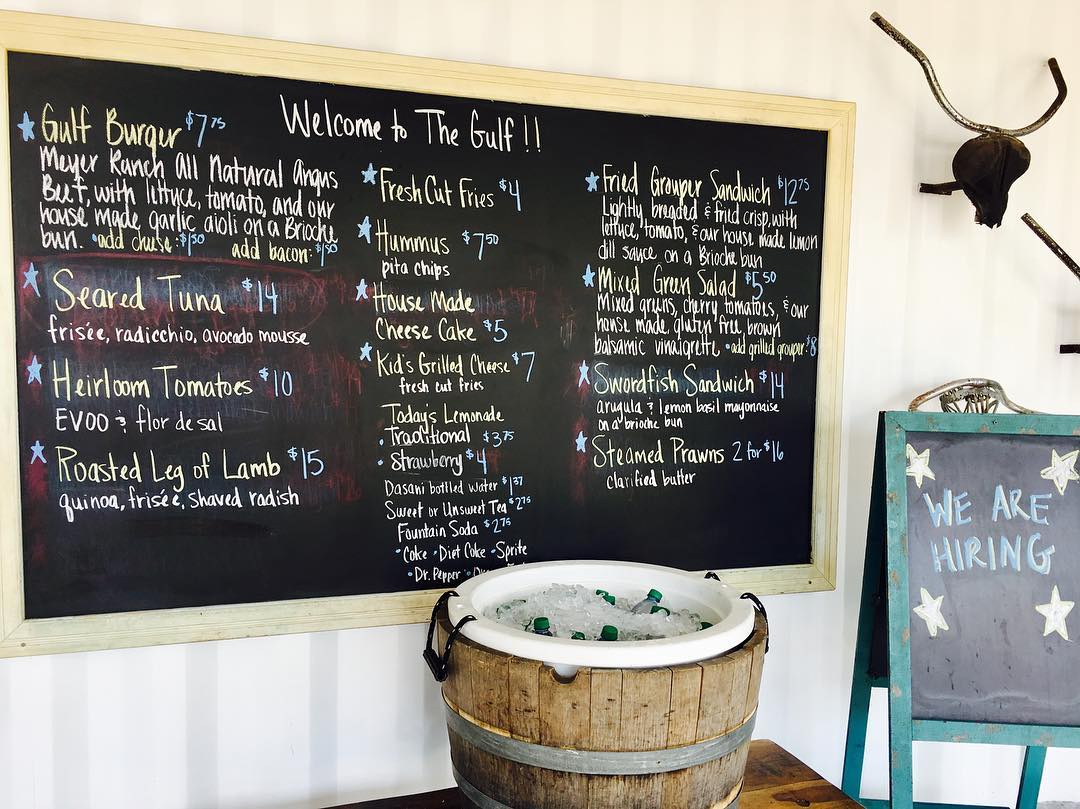 Welcome to The Gulf!!
Gulf Burger $7.75
Meyer Ranch All Natural Angus
Beef, with lettuce, tomato, and our
house made garlic aioli on a Brioche
bun. •add cheese: $1.50 add bacon: $1.50
Seared Tuna $14
frisée, radicchio, avocado mousse
Heirloom Tomatoes $10
EVOO & flor de sal
Roasted Leg of Lamb $15
quinoa, frisée, shaved radish
Fresh Cut Fries $4
Hummus $7.50
pita chips
House Made
Cheese Cake $5
Kid's Grilled Cheese $7
fresh cut fries
Today's Lemonade
• Traditional $3.75
• Strawberry $4
Dasani bottled water $1.37
Sweet or Unsweet Tea $2.75
Fountain Soda $2.75
• Coke • Diet Coke • Sprite
• Dr. Pepper •
Fried Grouper Sandwich $12.75
Lightly breaded & fried crisp, with
lettuce, tomato, & our house made lemon
dill sauce on a Brioche bun
Mixed Green Salad $5.50
Mixed greens, cherry tomatoes, & our
house made, gluten free, brown
balsamic vinaigrette •add grilled grouper: $8
Swordfish Sandwich $14
arugula & lemon basil mayonnaise
on a brioche bun
Steamed Prawns 2 for $16
clarified butter
WE ARE
HIRING